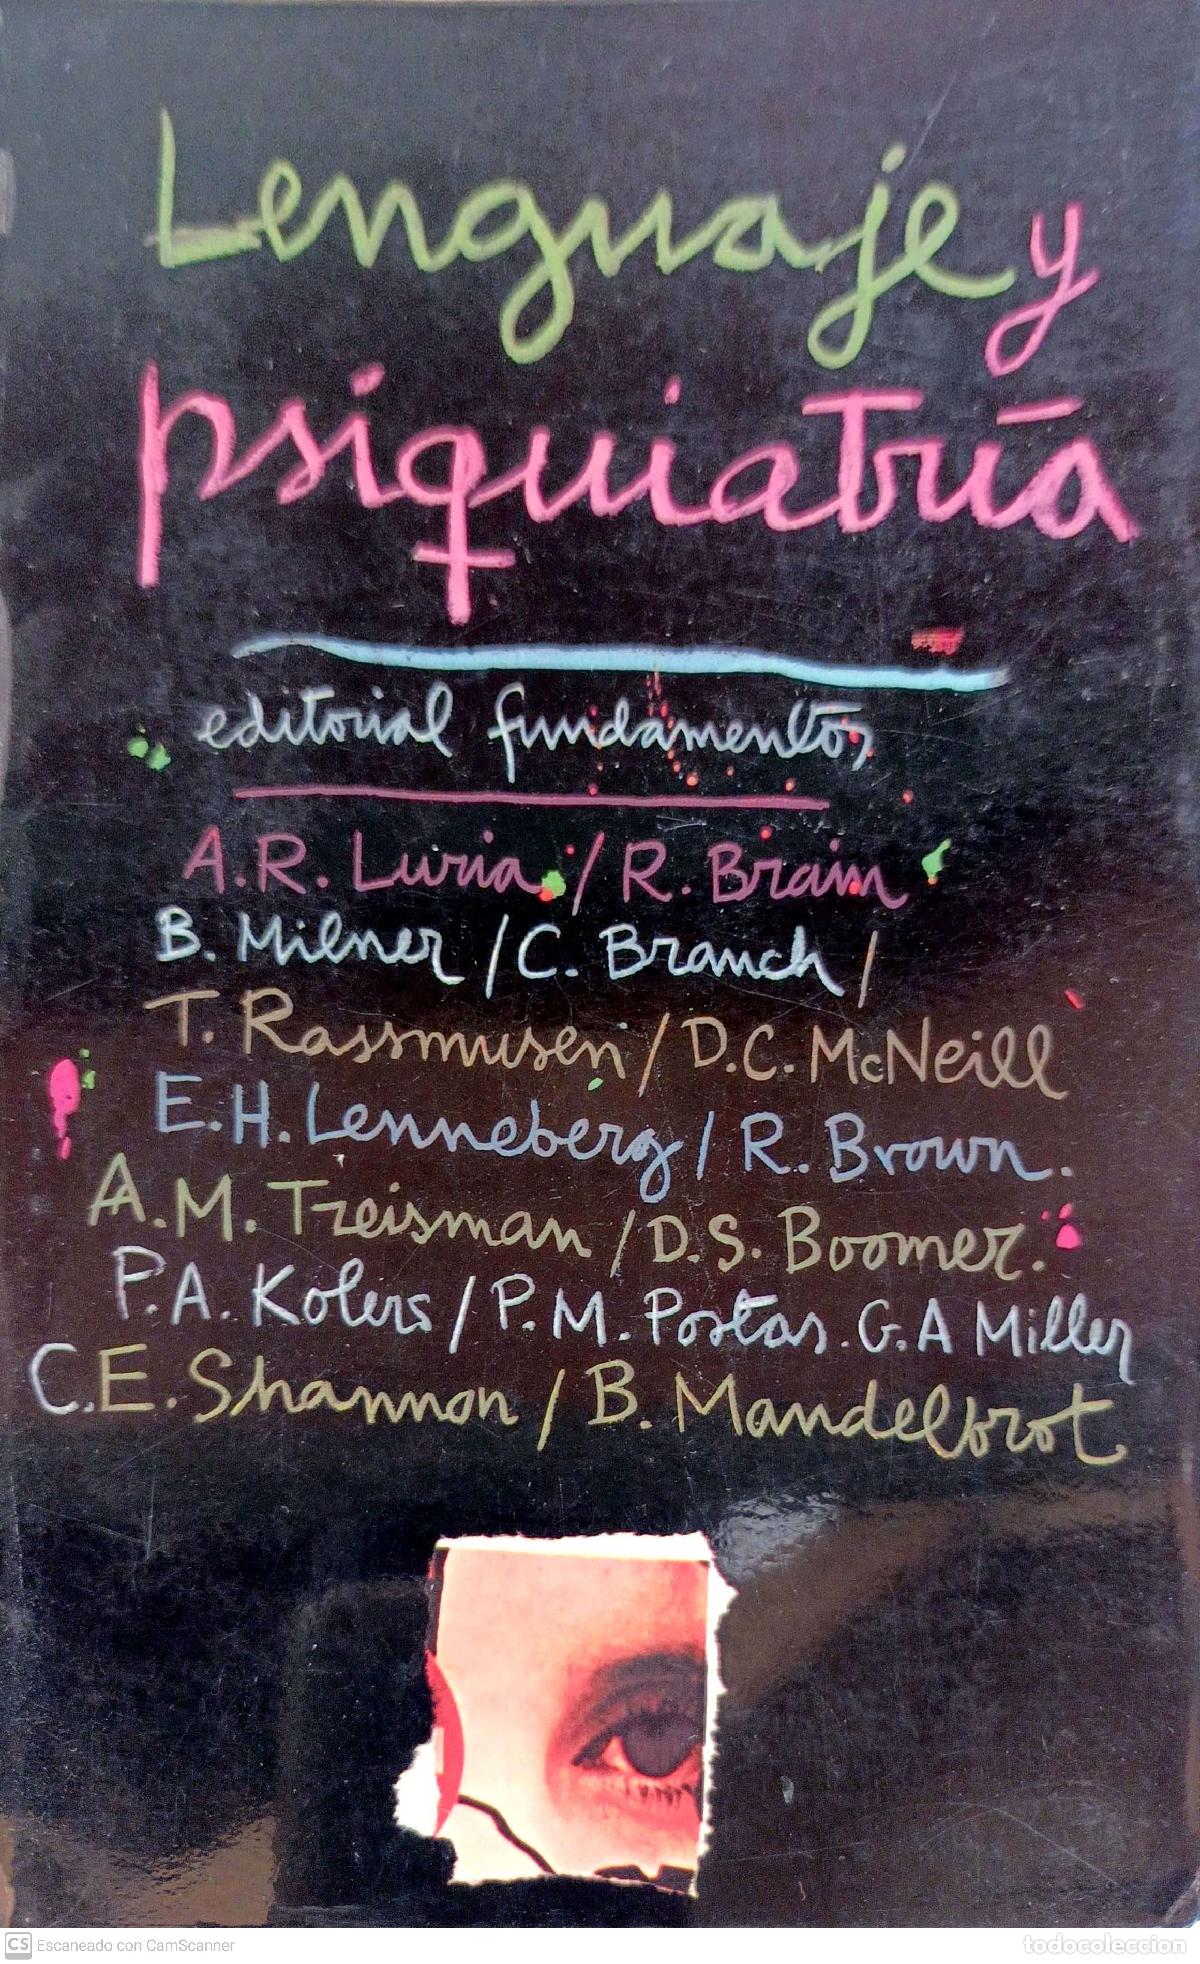 Lenguaje y
psiquiatría
editorial fundamentos
A.R. Luria / R. Brain
B. Milner / C. Branch /
T. Rassmusen / D.C. McNeill
E.H. Lenneberg / R. Brown.
A.M. Treisman / D.S. Boomer.
P.A. Kolers / P.M. Postas. G.A Miller
C.E. Shannon / B. Mandelbrot
CS Escaneado con CamScanner
todocoleccion